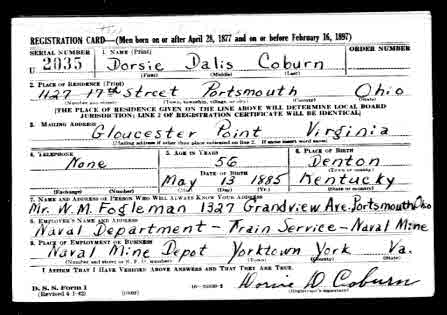 REGISTRATION CARD—(Men born on or after April 28, 1877 and on or before February 16, 1897)
SERIAL NUMBER 1. NAME (Print) ORDER NUMBER
U 2035 Dorsie Dalis Coburn
(First) (Middle) (Last)
2. PLACE OF RESIDENCE (Print)
1127 17th Street Portsmouth Ohio
(Number and street) (Town, township, village, or city) (County) (State)
[THE PLACE OF RESIDENCE GIVEN ON THE LINE ABOVE WILL DETERMINE LOCAL BOARD
JURISDICTION; LINE 2 OF REGISTRATION CERTIFICATE WILL BE IDENTICAL]
3. MAILING ADDRESS
Gloucester Point Virginia
[Mailing address if other than place indicated on line 2. If same insert word same]
4. TELEPHONE 5. AGE IN YEARS 6. PLACE OF BIRTH
None 56 Denton
DATE OF BIRTH (Town or county)
May 13 1885 Kentucky
(Exchange) (Number) (Mo.) (Day) (Yr.) (State or country)
7. NAME AND ADDRESS OF PERSON WHO WILL ALWAYS KNOW YOUR ADDRESS
Mr. W. M. Fogleman 1327 Grandview Ave. Portsmouth Ohio
8. EMPLOYER'S NAME AND ADDRESS
Naval Department - Train Service - Naval Mine
9. PLACE OF EMPLOYMENT OR BUSINESS
Naval Mine Depot Yorktown York Va.
(Number and street or R. F. D. number) (Town) (County) (State)
I AFFIRM THAT I HAVE VERIFIED ABOVE ANSWERS AND THAT THEY ARE TRUE.
D. S. S. Form 1 Dorsie D. Coburn
(Revised 4-1-42) (over) (Registrant's signature)